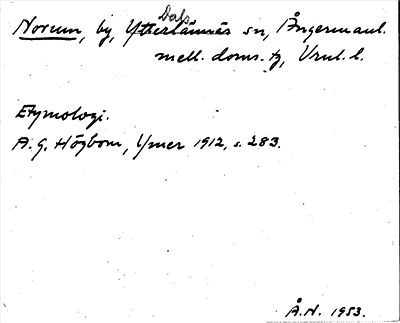 Dals
Norum, by, Ytterlännäs sn, Ångermanl.
mell. doms. tg, Vnrl. l.
Etymologi.
A. G. Högbom, Ymer 1912, s. 283.
Å.N. 1953.